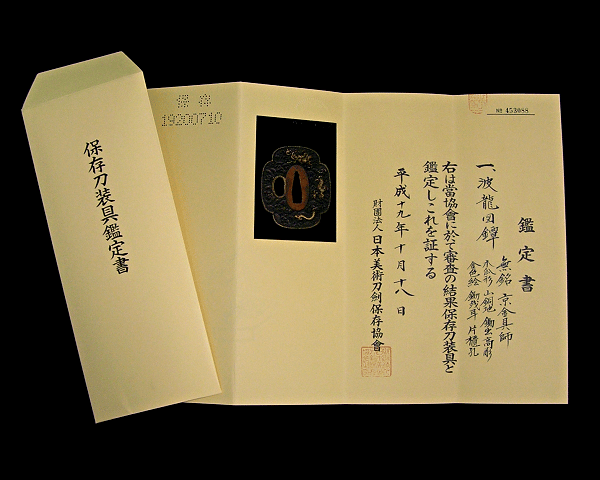 保存刀装具鑑定書
保存
19200710
№ 453088
鑑定書
一、波龍図鐔
無銘 京金具師
木瓜形 山銅地 鋤出高彫
金色絵 鋤残耳 片櫃孔
右は當協會に於て審査の結果保存刀装具と
鑑定しこれを証する
平成十九年十月十八日
財團法人日本美術刀剣保存協會